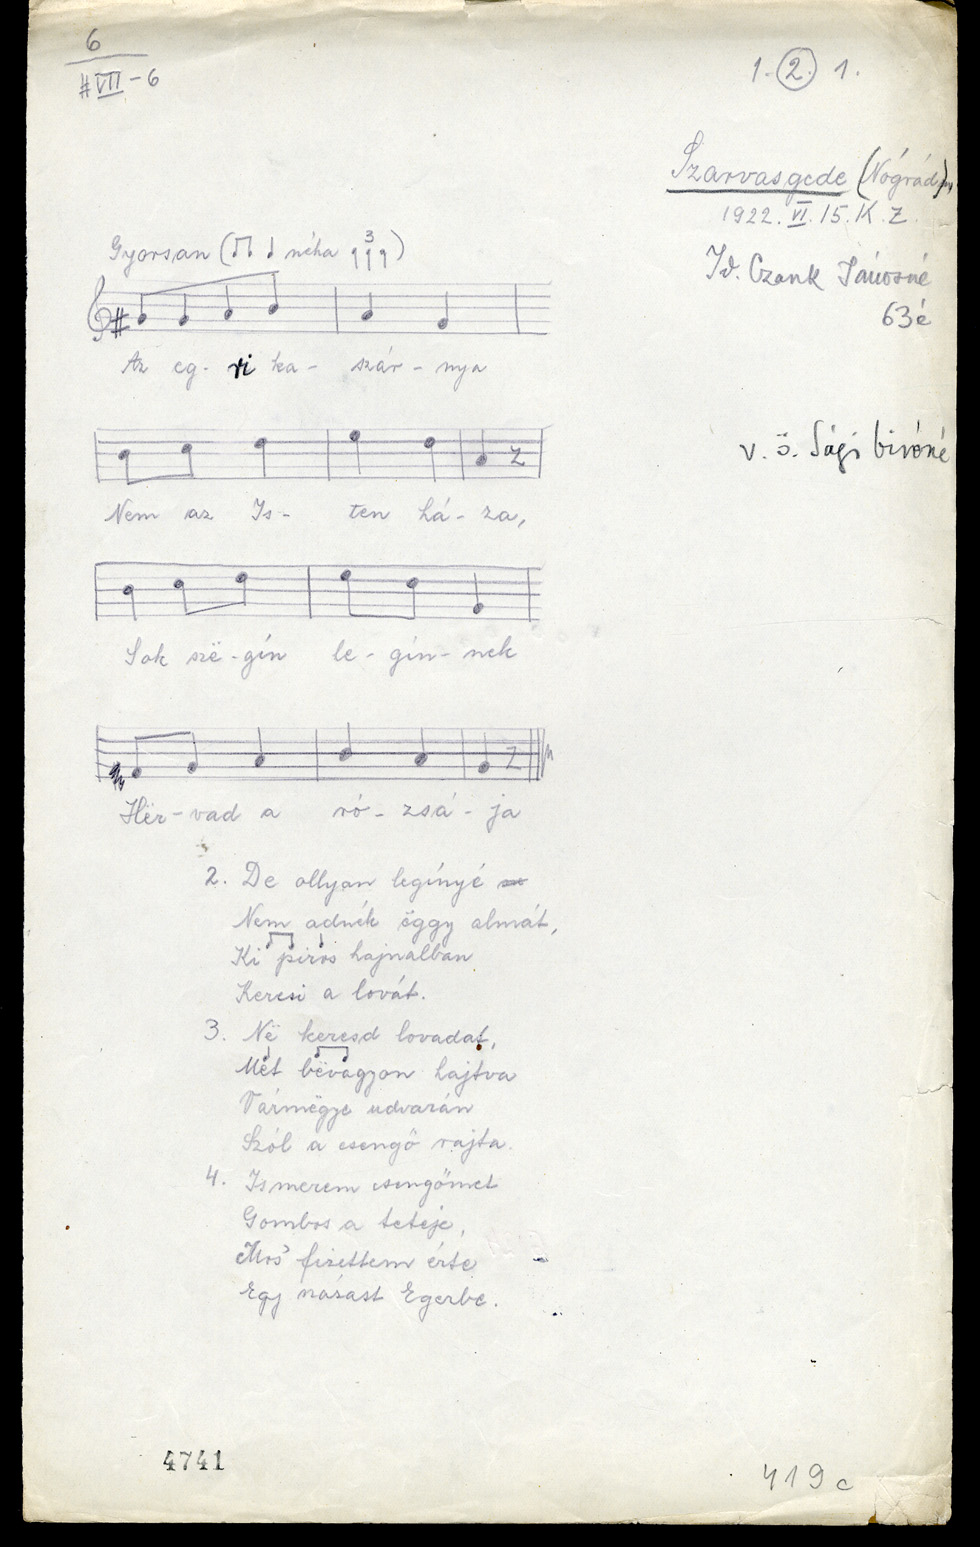 6
#VII-6
1. 2. 1.
Szarvasgede (Nógrád m)
1922. VI. 15. K. Z.
Gyorsan ( néha 3 )
Id. Czank Jánosné
63é
Az eg-ri ka-szár-nya
v. ö. Sági biróné
Nem az Is-ten há-za,
Sok szë-gín le-gín-nek
Hër-vad a ró-zsá-ja
2. De ollyan legínyé
Nem adnék ëggy almát,
Ki piros hajnalban
Keresi a lovát.
3. Në keresd lovadat,
Mët bëvagyon hajtva
Vármëgye udvarán
Szól a csengő rajta.
4. Ismerem csengőmet
Gombos a teteje,
Mos' fizettem érte
Egy Egerbe.
4741
419c